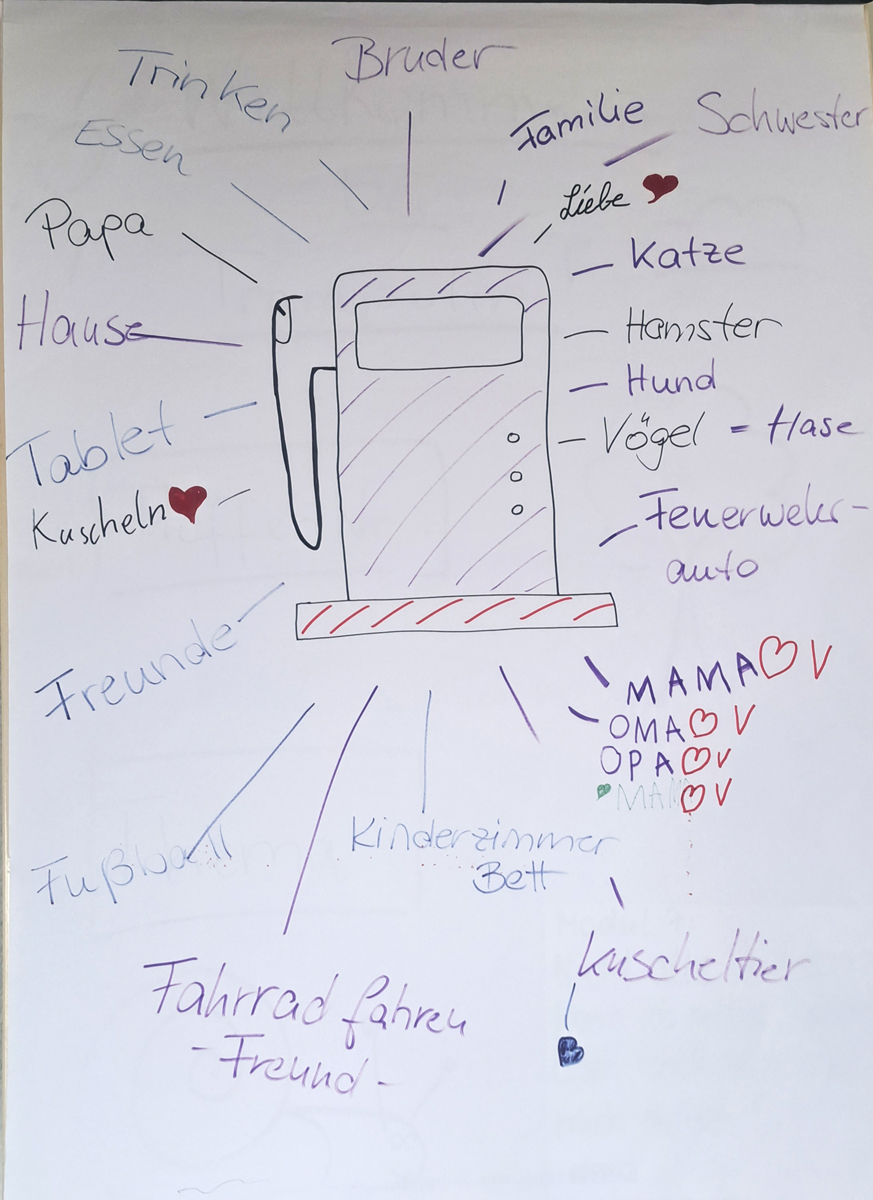 Bruder
Trinken
Essen
Familie
Schwester
Liebe
Papa
Katze
Hause
Hamster
Hund
Tablet
Vögel = Hase
Kuscheln
Feuerwehr-
auto
Freunde
MAMA V
OMA V
OPA V
MAMA V
Fußball
Kinderzimmer
Bett
Kuscheltier
Fahrrad fahren
- Freund -